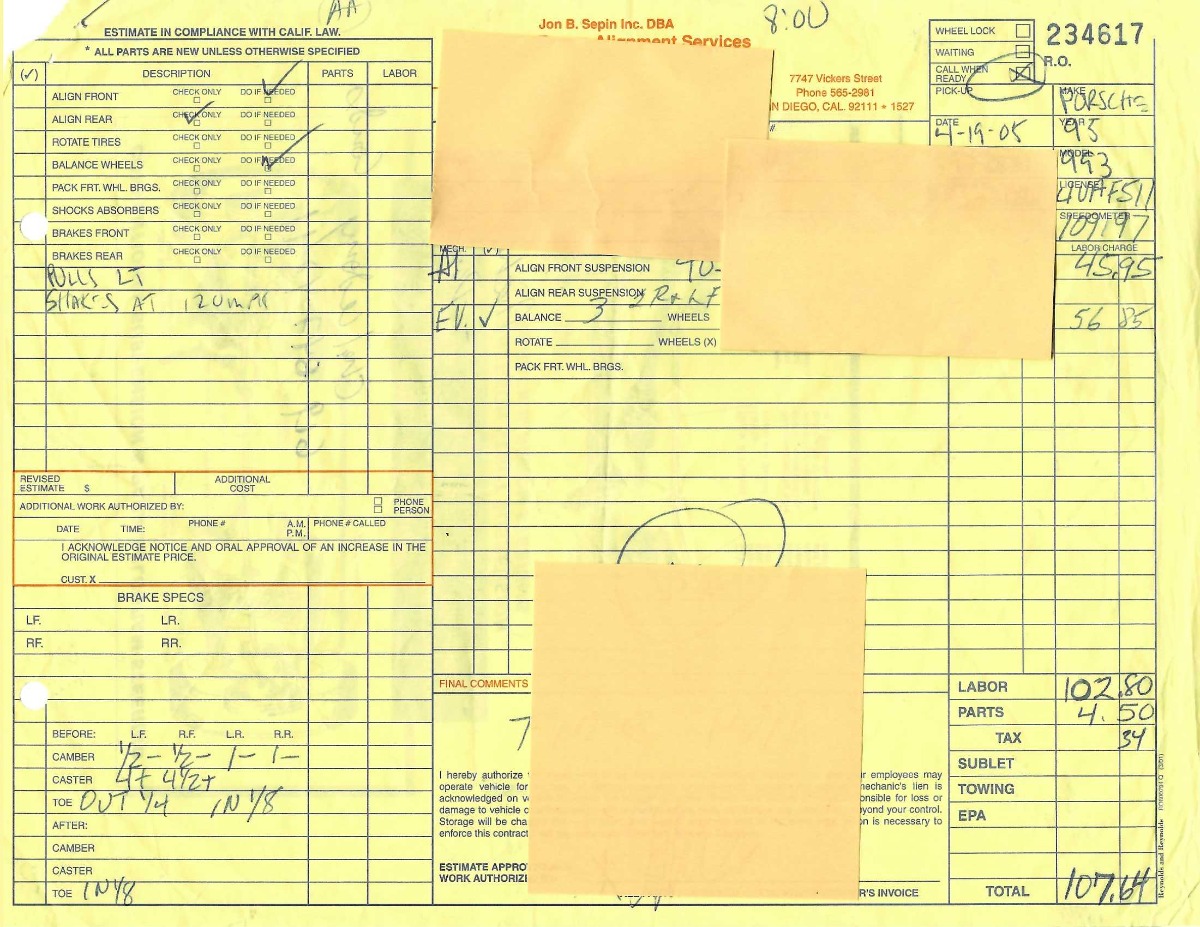 AA
8:00
ESTIMATE IN COMPLIANCE WITH CALIF. LAW.
* ALL PARTS ARE NEW UNLESS OTHERWISE SPECIFIED
Jon B. Sepin Inc. DBA
Alignment Services
7747 Vickers Street
Phone 565-2981
N DIEGO, CAL. 92111 * 1527
#
WHEEL LOCK
WAITING
CALL WHEN READY
PICK-UP
234617
R.O.
DATE 4-19-05
MAKE PORSCHE
YEAR 95
MODEL 993
LICENSE
SPEEDOMETER 109197
(✓) DESCRIPTION PARTS LABOR
ALIGN FRONT CHECK ONLY DO IF NEEDED
ALIGN REAR CHECK ONLY DO IF NEEDED
ROTATE TIRES CHECK ONLY DO IF NEEDED
BALANCE WHEELS CHECK ONLY DO IF NEEDED
PACK FRT. WHL. BRGS. CHECK ONLY DO IF NEEDED
SHOCKS ABSORBERS CHECK ONLY DO IF NEEDED
BRAKES FRONT CHECK ONLY DO IF NEEDED
BRAKES REAR CHECK ONLY DO IF NEEDED
PULLS LT
SHAKES AT 120 MPH
MECH. (✓) LABOR CHARGE
ALIGN FRONT SUSPENSION 45.95
ALIGN REAR SUSPENSION
EV. ✓ BALANCE 3 WHEELS 56 85
ROTATE WHEELS (X)
PACK FRT. WHL. BRGS.
REVISED ESTIMATE $ ADDITIONAL COST
ADDITIONAL WORK AUTHORIZED BY: PHONE PERSON
DATE TIME: A.M. P.M. PHONE # PHONE # CALLED
I ACKNOWLEDGE NOTICE AND ORAL APPROVAL OF AN INCREASE IN THE
ORIGINAL ESTIMATE PRICE.
CUST. X
BRAKE SPECS
LF. LR.
RF. RR.
BEFORE: L.F. R.F. L.R. R.R.
CAMBER 1/2- 1/2- 1- 1-
CASTER 4+ 4 1/2+
TOE OUT 1/4 IN 1/8
AFTER:
CAMBER
CASTER
TOE IN 1/8
FINAL COMMENTS
7
I hereby authorize r employees may
operate vehicle for mechanic's lien is
acknowledged on v onsible for loss or
damage to vehicle o eyond your control.
Storage will be cha n is necessary to
enforce this contract
ESTIMATE APPRO
WORK AUTHORIZ R'S INVOICE
LABOR 102.80
PARTS 4.50
TAX 34
SUBLET
TOWING
EPA
TOTAL 107.64
Reynolds and Reynolds